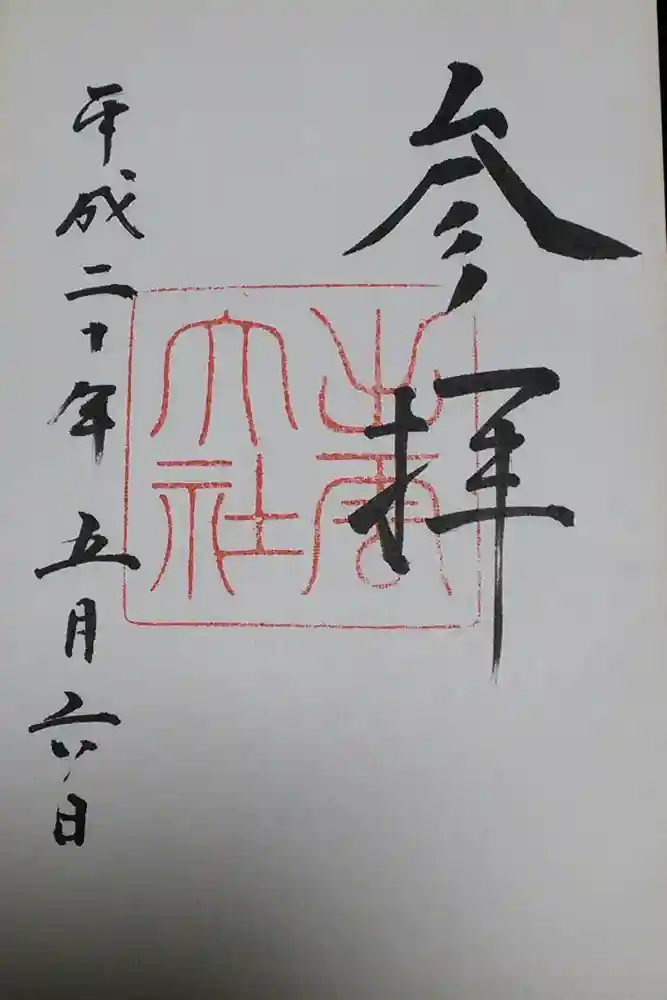 参拝
出雲
大社
平成二十年五月六日